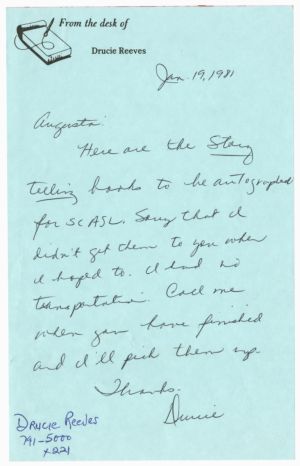 From the desk of
Drucie Reeves
Jan. 19, 1981
Augusta:
Here are the Story
telling books to be autographed
for SCASL. Sorry that I
didn't get them to you when
I hoped to. I had no
transportation. Call me
when you have finished
and I'll pick them up.
Thanks.
Drucie
Drucie Reeves
791-5000
x221